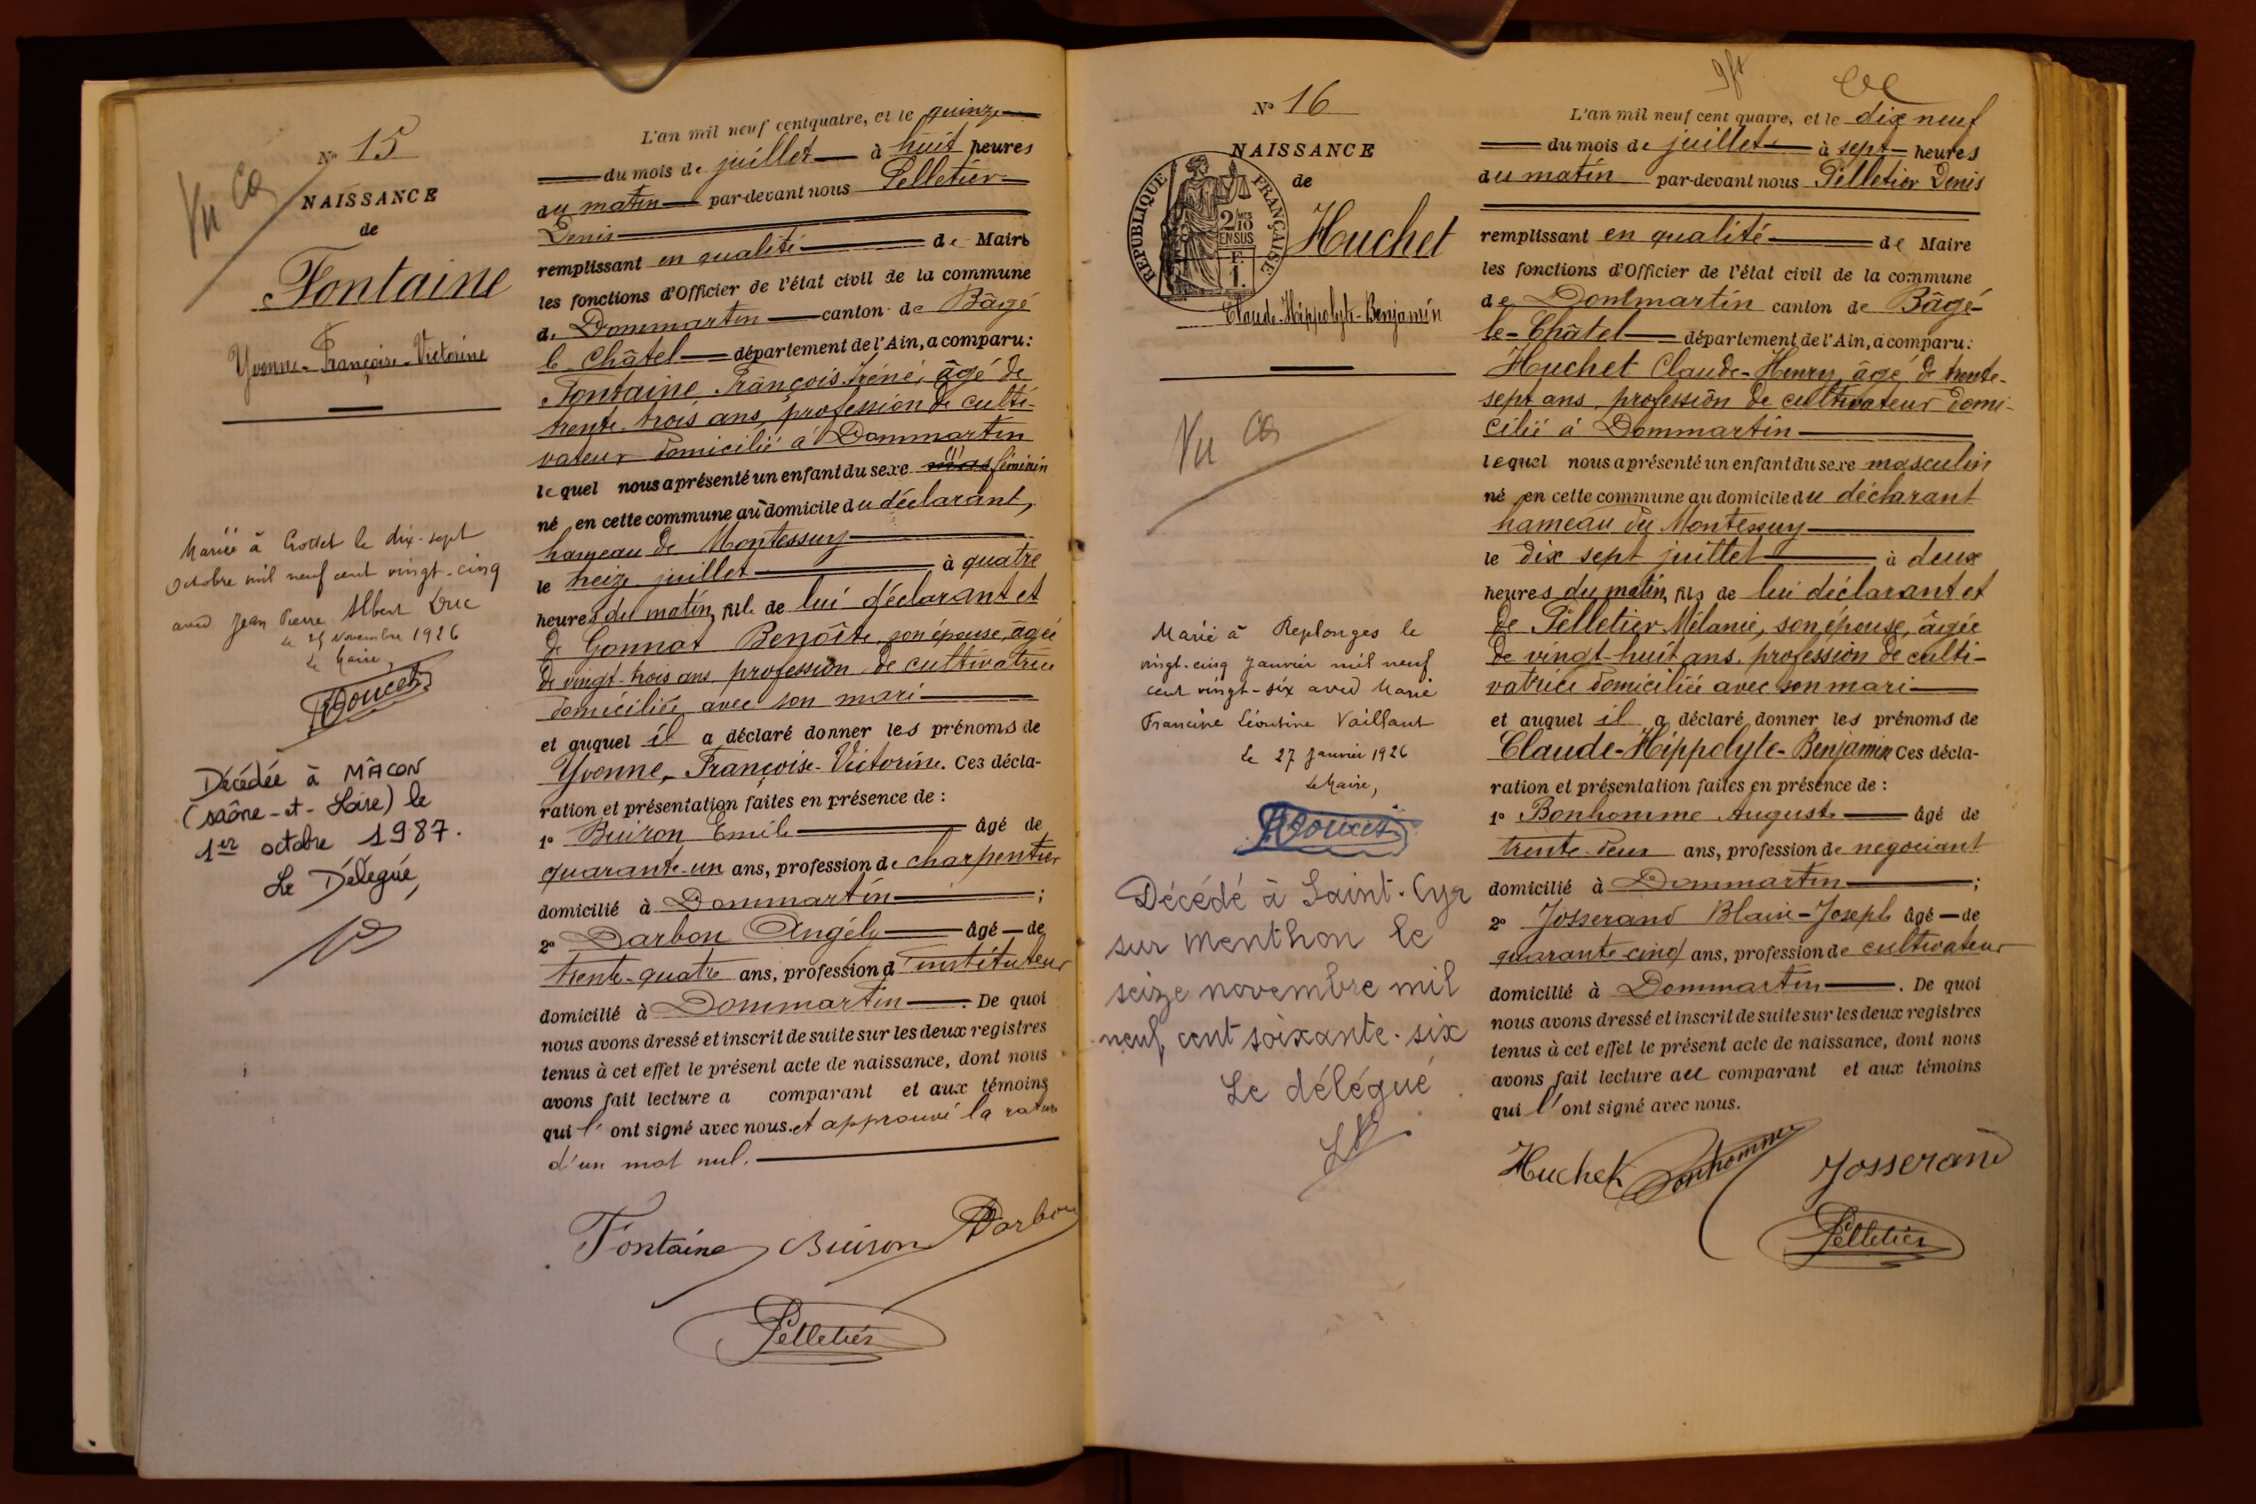 Vu
N° 15
NAISSANCE
de
Fontaine
Yvonne-Françoise-Victorine
Mariée à Crottet le dix-sept
octobre mil neuf cent vingt-cinq
avec Jean Pierre Albert Duc
le 25 novembre 1926
Le Maire,
Doucet
Décédée à MÂCON
(Saône-et-Loire) le
1er octobre 1987.
Le Délégué,
L'an mil neuf cent quatre, et le quinze
du mois de juillet à huit heures
du matin par-devant nous Pelletier
Denis
remplissant en qualité de Maire
les fonctions d'Officier de l'état civil de la commune
de Dommartin canton de Bâgé
le Châtel département de l'Ain, a comparu :
Fontaine François Iréné, âgé de
trente-trois ans, profession de culti-
vateur domicilié à Dommartin
lequel nous a présenté un enfant du sexe mas féminin
né en cette commune au domicile du déclarant,
hameau de Montessuy
le treize juillet à quatre
heures du matin, fille de lui déclarant et
de Gonnat Benoîte, son épouse, âgée
de vingt-trois ans, profession de cultivatrice
domiciliée avec son mari
et auquel il a déclaré donner les prénoms de
Yvonne-Françoise-Victorine. Ces décla-
ration et présentation faites en présence de :
1° Buiron Emile âgé de
quarante-un ans, profession de charpentier
domicilié à Dommartin ;
2° Darbon Angély âgé de
trente-quatre ans, profession d'instituteur
domicilié à Dommartin. De quoi
nous avons dressé et inscrit de suite sur les deux registres
tenus à cet effet le présent acte de naissance, dont nous
avons fait lecture a comparant et aux témoins
qui l'ont signé avec nous. et approuvé la rature
d'un mot nul.
Fontaine Buiron Darbon
Pelletier
N° 16
NAISSANCE
de
RÉPUBLIQUE FRANÇAISE
2/10 MES
EN SUS
F.
1.
Huchet
Claude-Hippolyte-Benjamin
Vu
Marié à Replonges le
vingt-cinq janvier mil neuf
cent vingt-six avec Marie
Francine Léontine Vaillant
Le 27 janvier 1926
Le Maire,
Doucet
Décédé à Saint-Cyr
sur Menthon le
seize novembre mil
neuf cent soixante-six
Le délégué
L'an mil neuf cent quatre, et le dix neuf
du mois de juillet à sept heures
du matin par-devant nous Pelletier Denis
remplissant en qualité de Maire
les fonctions d'Officier de l'état civil de la commune
de Dontmartin canton de Bâgé-
le-Châtel département de l'Ain, a comparu :
Huchet Claude-Henry, âgé de trente-
sept ans, profession de cultivateur domi-
cilié à Dommartin
lequel nous a présenté un enfant du sexe masculin
né en cette commune au domicile du déclarant
hameau du Montessuy
le dix sept juillet à deux
heures du matin, fils de lui déclarant et
de Pelletier Mélanie, son épouse, âgée
de vingt-huit ans, profession de culti-
vatrice domiciliée avec son mari
et auquel il a déclaré donner les prénoms de
Claude-Hippolyte-Benjamin Ces décla-
ration et présentation faites en présence de :
1° Bonhomme Auguste âgé de
trente-deux ans, profession de négociant
domicilié à Dommartin ;
2° Josserand Blaise-Joseph âgé de
quarante-cinq ans, profession de cultivateur
domicilié à Dommartin. De quoi
nous avons dressé et inscrit de suite sur les deux registres
tenus à cet effet le présent acte de naissance, dont nous
avons fait lecture au comparant et aux témoins
qui l'ont signé avec nous.
Huchet Bonhomme Josserand
Pelletier